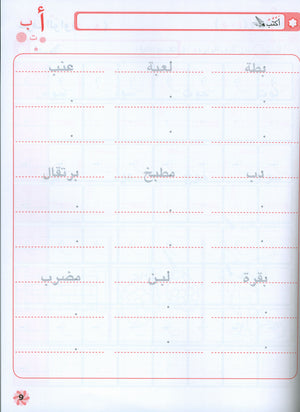 أكتب أ ب
ت
بطة لعبة عنب
دب مطبخ برتقال
بقرة لبن مضرب
9